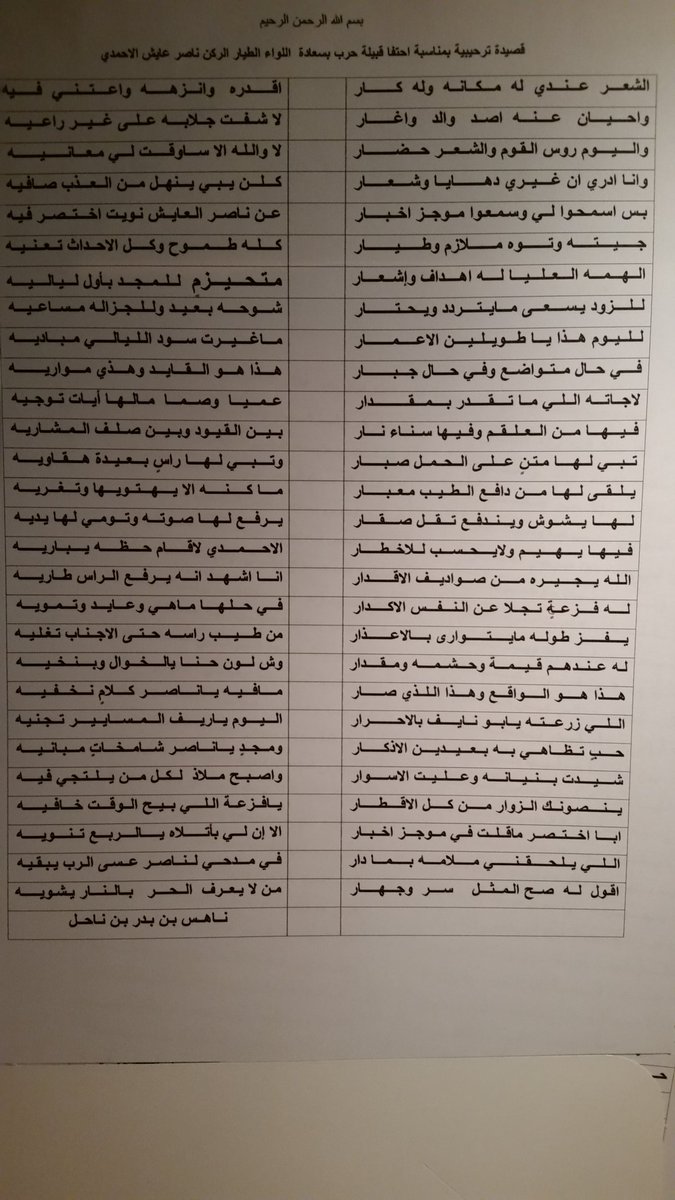 بسم الله الرحمن الرحيم
قصيدة ترحيبية بمناسبة احتفا قبيلة حرب بسعادة اللواء الطيار الركن ناصر عايش الاحمدي
الشعر عندي له مكانه وله كار اقدره وانزهه واعتني فيه
واحيان عنه اصد والد واغار لا شفت جلابه على غير راعيه
واليوم روس القوم والشعر حضار لا والله الا ساوقت لي معانيه
وانا ادري ان غيري دهايا وشعار كلن يبي ينهل من العذب صافيه
بس اسمحوا لي وسمعوا موجز اخبار عن ناصر العايش نويت اختصر فيه
جيته وتوه ملازم وطيار كله طموح وكل الاحداث تعنيه
الهمه العليا له اهداف وإشعار متحيزمٍ للمجد بأول لياليه
للزود يسعى مايتردد ويحتار شوحه بعيد وللجزاله مساعيه
لليوم هذا يا طويلين الاعمار ماغيرت سود الليالي مباديه
في حال متواضع وفي حال جبار هذا هو القايد وهذي مواريه
لاجاته اللي ما تقدر بمقدار عميا وصما مالها أيات توجيه
فيها من العلقم وفيها سناء نار بين القيود وبين صلف المشاريه
تبي لها متنٍ على الحمل صبار وتبي لها راسٍ بعيدة هقاويه
يلقى لها من دافع الطيب معبار ما كنه الا يهتويها وتغريه
لها يشوش ويندفع تقل صقار يرفع لها صوته وتومي لها يديه
فيها يهيم ولايحسب للاخطار الاحمدي لاقام حظه يباريه
الله يجيره من صواديف الاقدار انا اشهد انه يرفع الراس طاريه
له فزعةٍ تجلا عن النفس الاكدار في حلها ماهي وعايد وتمويه
يفز طوله مايتوارى بالاعذار من طيب راسه حتى الاجناب تغليه
له عندهم قيمة وحشمه ومقدار وش لون حنا يالخوال وبنخيه
هذا هو الواقع وهذا اللذي صار مافيه ياناصر كلامٍ نخفيه
اللي زرعته يابو نايف بالاحرار اليوم ياريف المسايير تجنيه
حبٍ تظاهي به بعيدين الاذكار ومجدٍ ياناصر شامخاتٍ مبانيه
شيدت بنيانه وعليت الاسوار واصبح ملاذ لكل من يلتجي فيه
ينصونك الزوار من كل الاقطار يافزعة اللي بيح الوقت خافيه
ابا اختصر ماقلت في موجز اخبار الا إن لي بأتلاه يالربع تنويه
اللي يلحقني ملامه بما دار في مدحي لناصر عسى الرب يبقيه
اقول له صح المثل سر وجهار من لا يعرف الحر بالنار يشويه
ناهس بن بدر بن ناحل